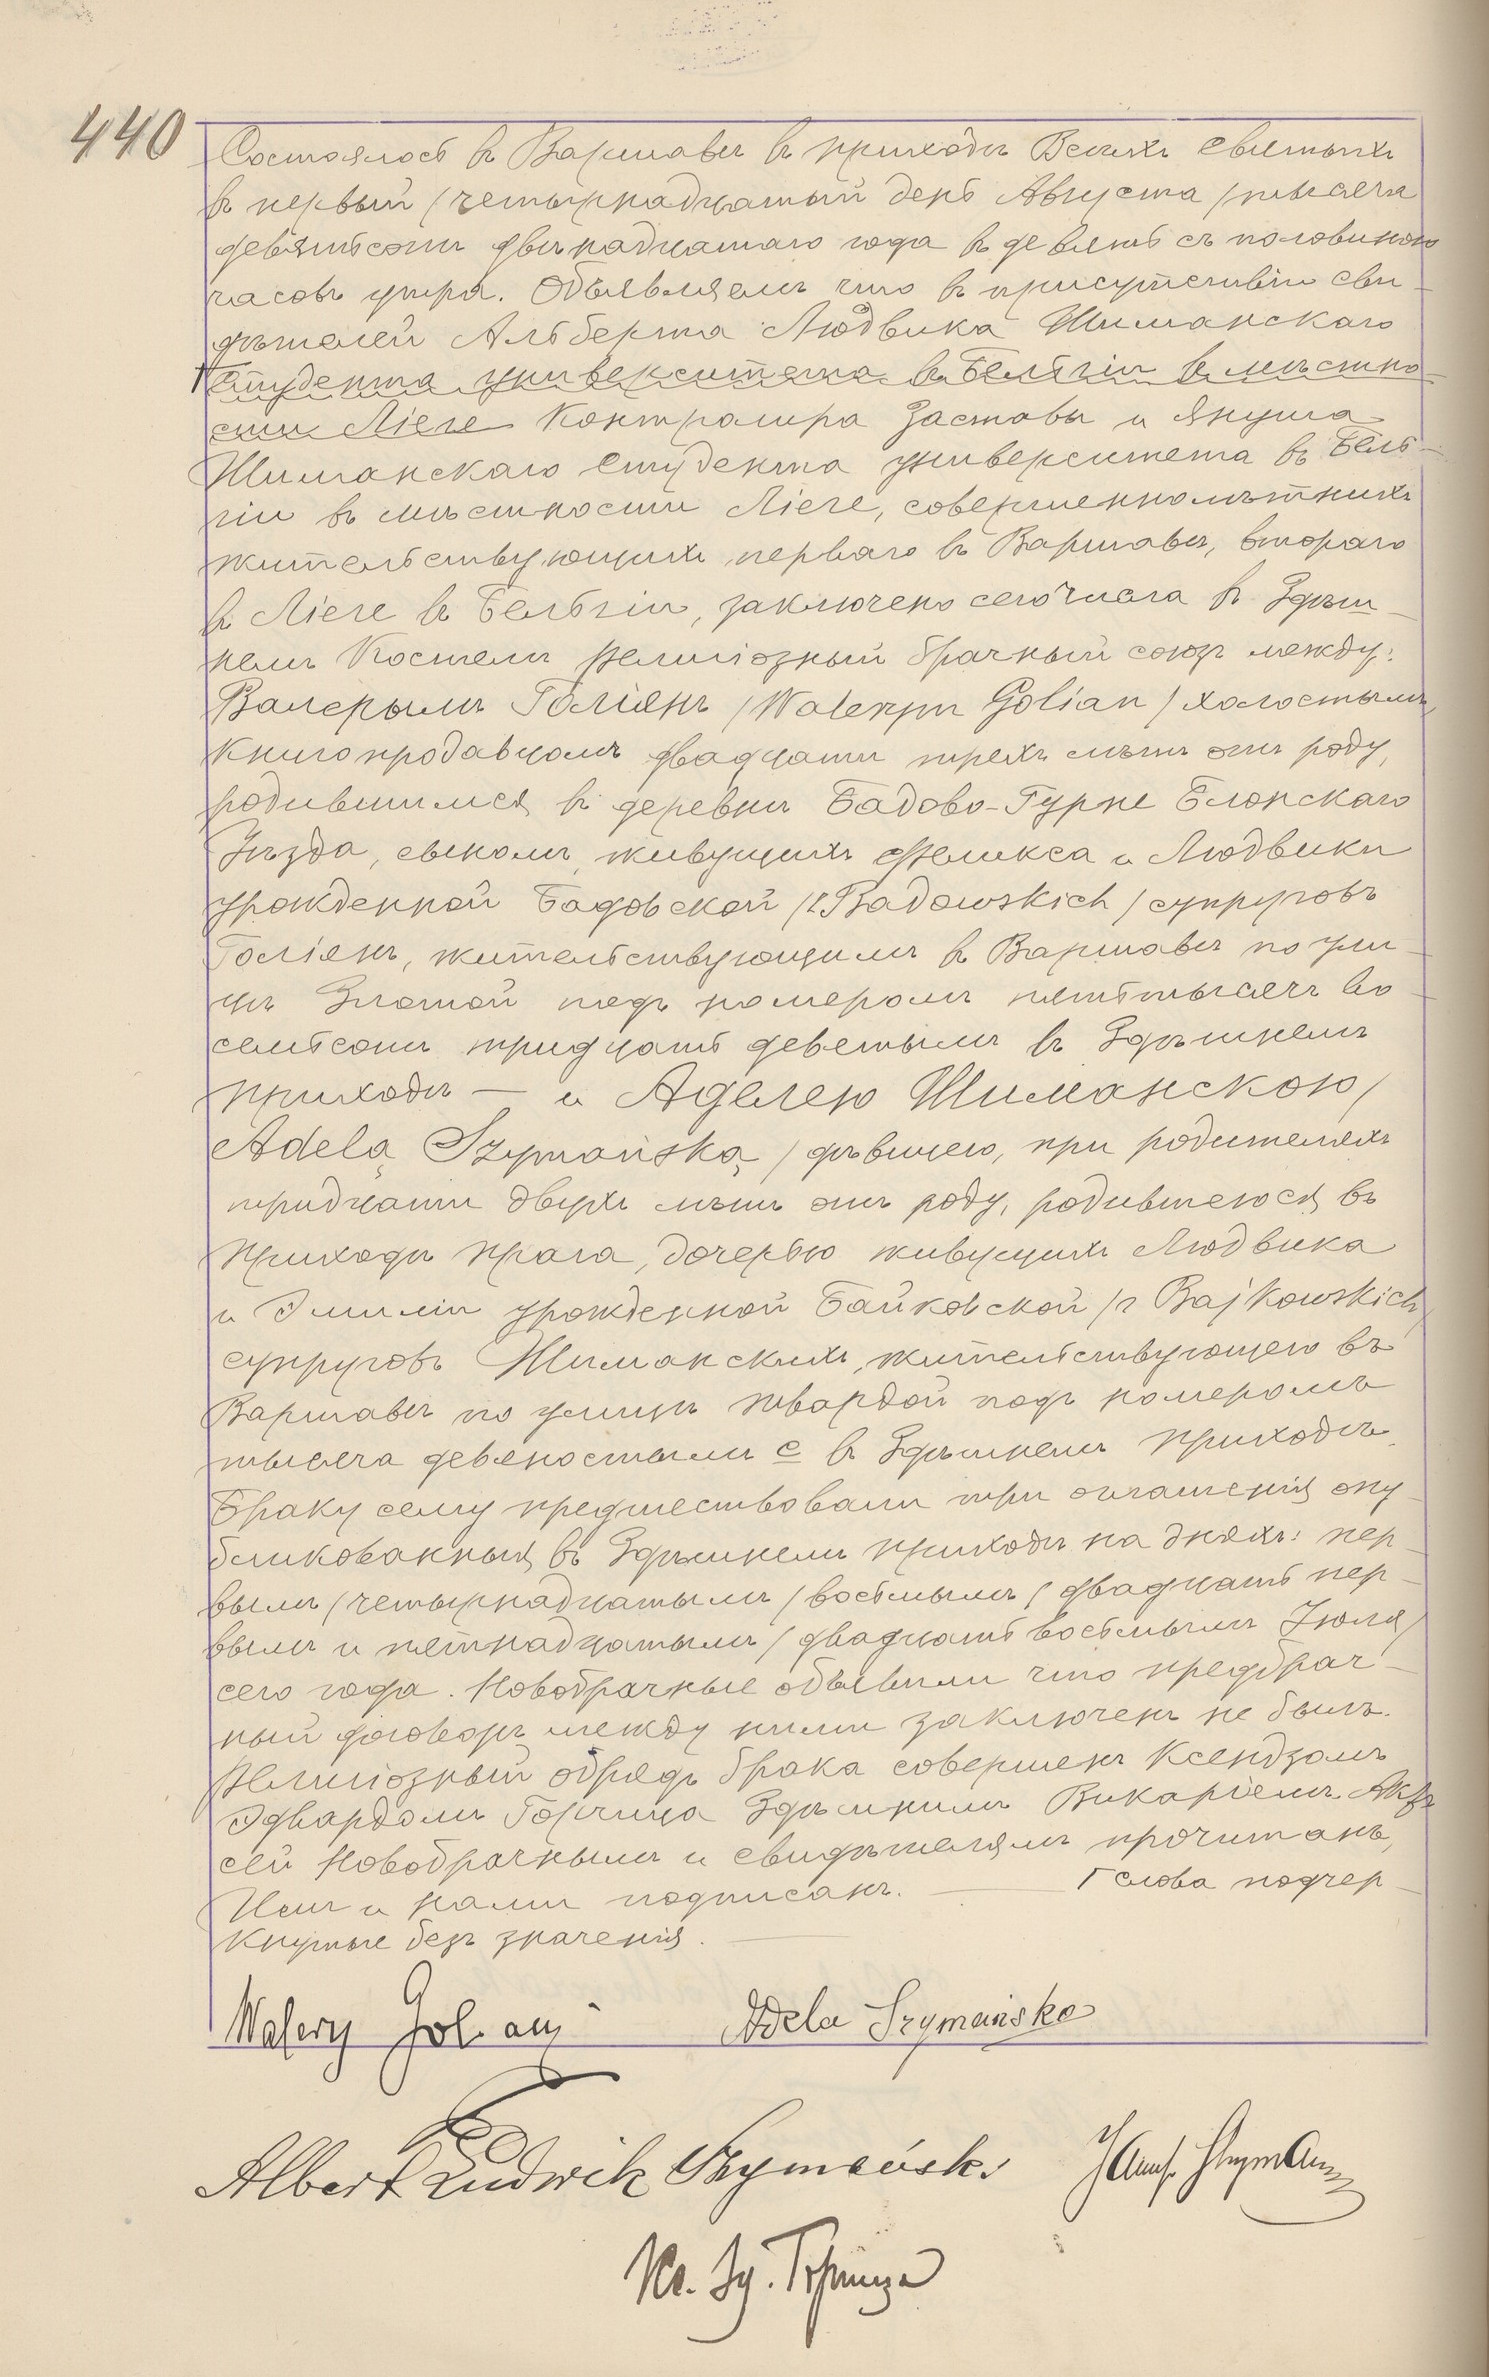 440
Состоялось въ Варшавѣ въ приходѣ Всѣхъ Святыхъ
въ первый /четырнадцатый день Августа/ тысяча
девятьсотъ двѣнадцатаго года въ девять съ половиною
часовъ утра. Объявляемъ что въ присутствіи сви-
дѣтелей Альберта Людвика Шиманскаго
Г Студента университета въ Бельгіи въ мѣстно-
сти Ліеге Контролира Заставы и Януша
Шиманскаго Студента университета въ Бель-
гіи въ мѣстности Ліеге, совершеннолѣтнихъ
жительствующихъ перваго въ Варшавѣ, втораго
въ Ліеге въ Бельгіи, заключено сего числа въ Здѣш-
немъ Костелѣ религіозный брачный союзъ между:
Валерымъ Голіянъ /Walerym Golian/ холостымъ,
Книгопродавцомъ двадцати трехъ лѣтъ отъ роду,
родившимся въ деревнѣ Бадово-Гурне Блонскаго
Уѣзда, сыномъ живущихъ Феликса и Людвики
урожденной Бадовской /z Badowskich/ супруговъ
Голіянъ, жительствующимъ въ Варшавѣ по ули-
цѣ Златой подъ номеромъ пятьтысячъ во-
семьсотъ тридцать девятымъ въ Здѣшнемъ
приходѣ — и Аделею Шиманскою/
Adelą Szymańską/ дѣвицею, при родителяхъ
тридцати двухъ лѣтъ отъ роду, родившеюся въ
приходѣ Прага, дочерью живущихъ Людвика
и Эмиліи урожденной Байковской /z Bajkowskich/
супруговъ Шиманскихъ, жительствующею въ
Варшавѣ по улицѣ Твардой подъ номеромъ
тысяча девяностымъ с въ Здѣшнемъ приходѣ.
Браку сему предшествовали три оглашенія опу-
бликованныя въ Здѣшнемъ приходѣ на дняхъ: пер-
вымъ /четырнадцатымъ/ восьмымъ /двадцать пер-
вымъ и пятнадцатымъ/ двадцать восьмымъ Іюля/
сего года. Новобрачные объявили что предбрач-
ный договоръ между ними заключенъ не былъ.
Религіозный обрядъ брака совершенъ Ксендзомъ
Эдвардомъ Горчица Здѣшнимъ Викаріемъ. Актъ
сей Новобрачнымъ и свидѣтелямъ прочитанъ,
Ими и нами подписанъ. — Г слова подчер-
кнутые безъ значенія.
Walery Golian Adela Szymańska
Albert Ludwik Szymański Janusz Szymański
Кс. Эд. Горчица